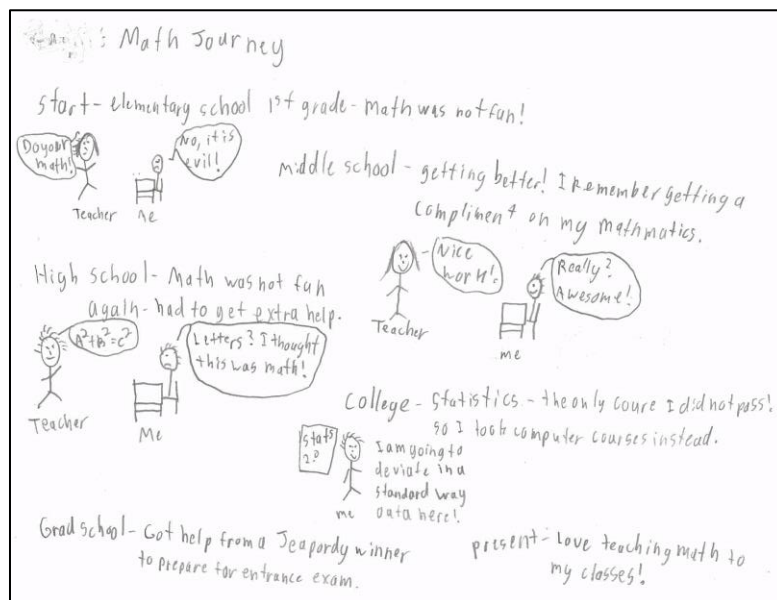 : Math Journey
Start - elementary school 1st grade - math was not fun!
Do your
math!
No, it is
evil!
Teacher
Me
middle school - getting better! I remember getting a
compliment on my mathmatics.
Nice
work!
Really?
Awesome!
Teacher
me
High school - Math was not fun
again - had to get extra help.
A²+B²=C²
Letters? I thought
this was math!
Teacher
Me
College - Statistics - the only coure I did not pass!
so I took computer courses instead.
Stats
2.0
I am going to
deviate in a
standard way
data here!
me
Grad school - Got help from a Jeapordy winner
to prepare for entrance exam.
present - Love teaching math to
my classes!